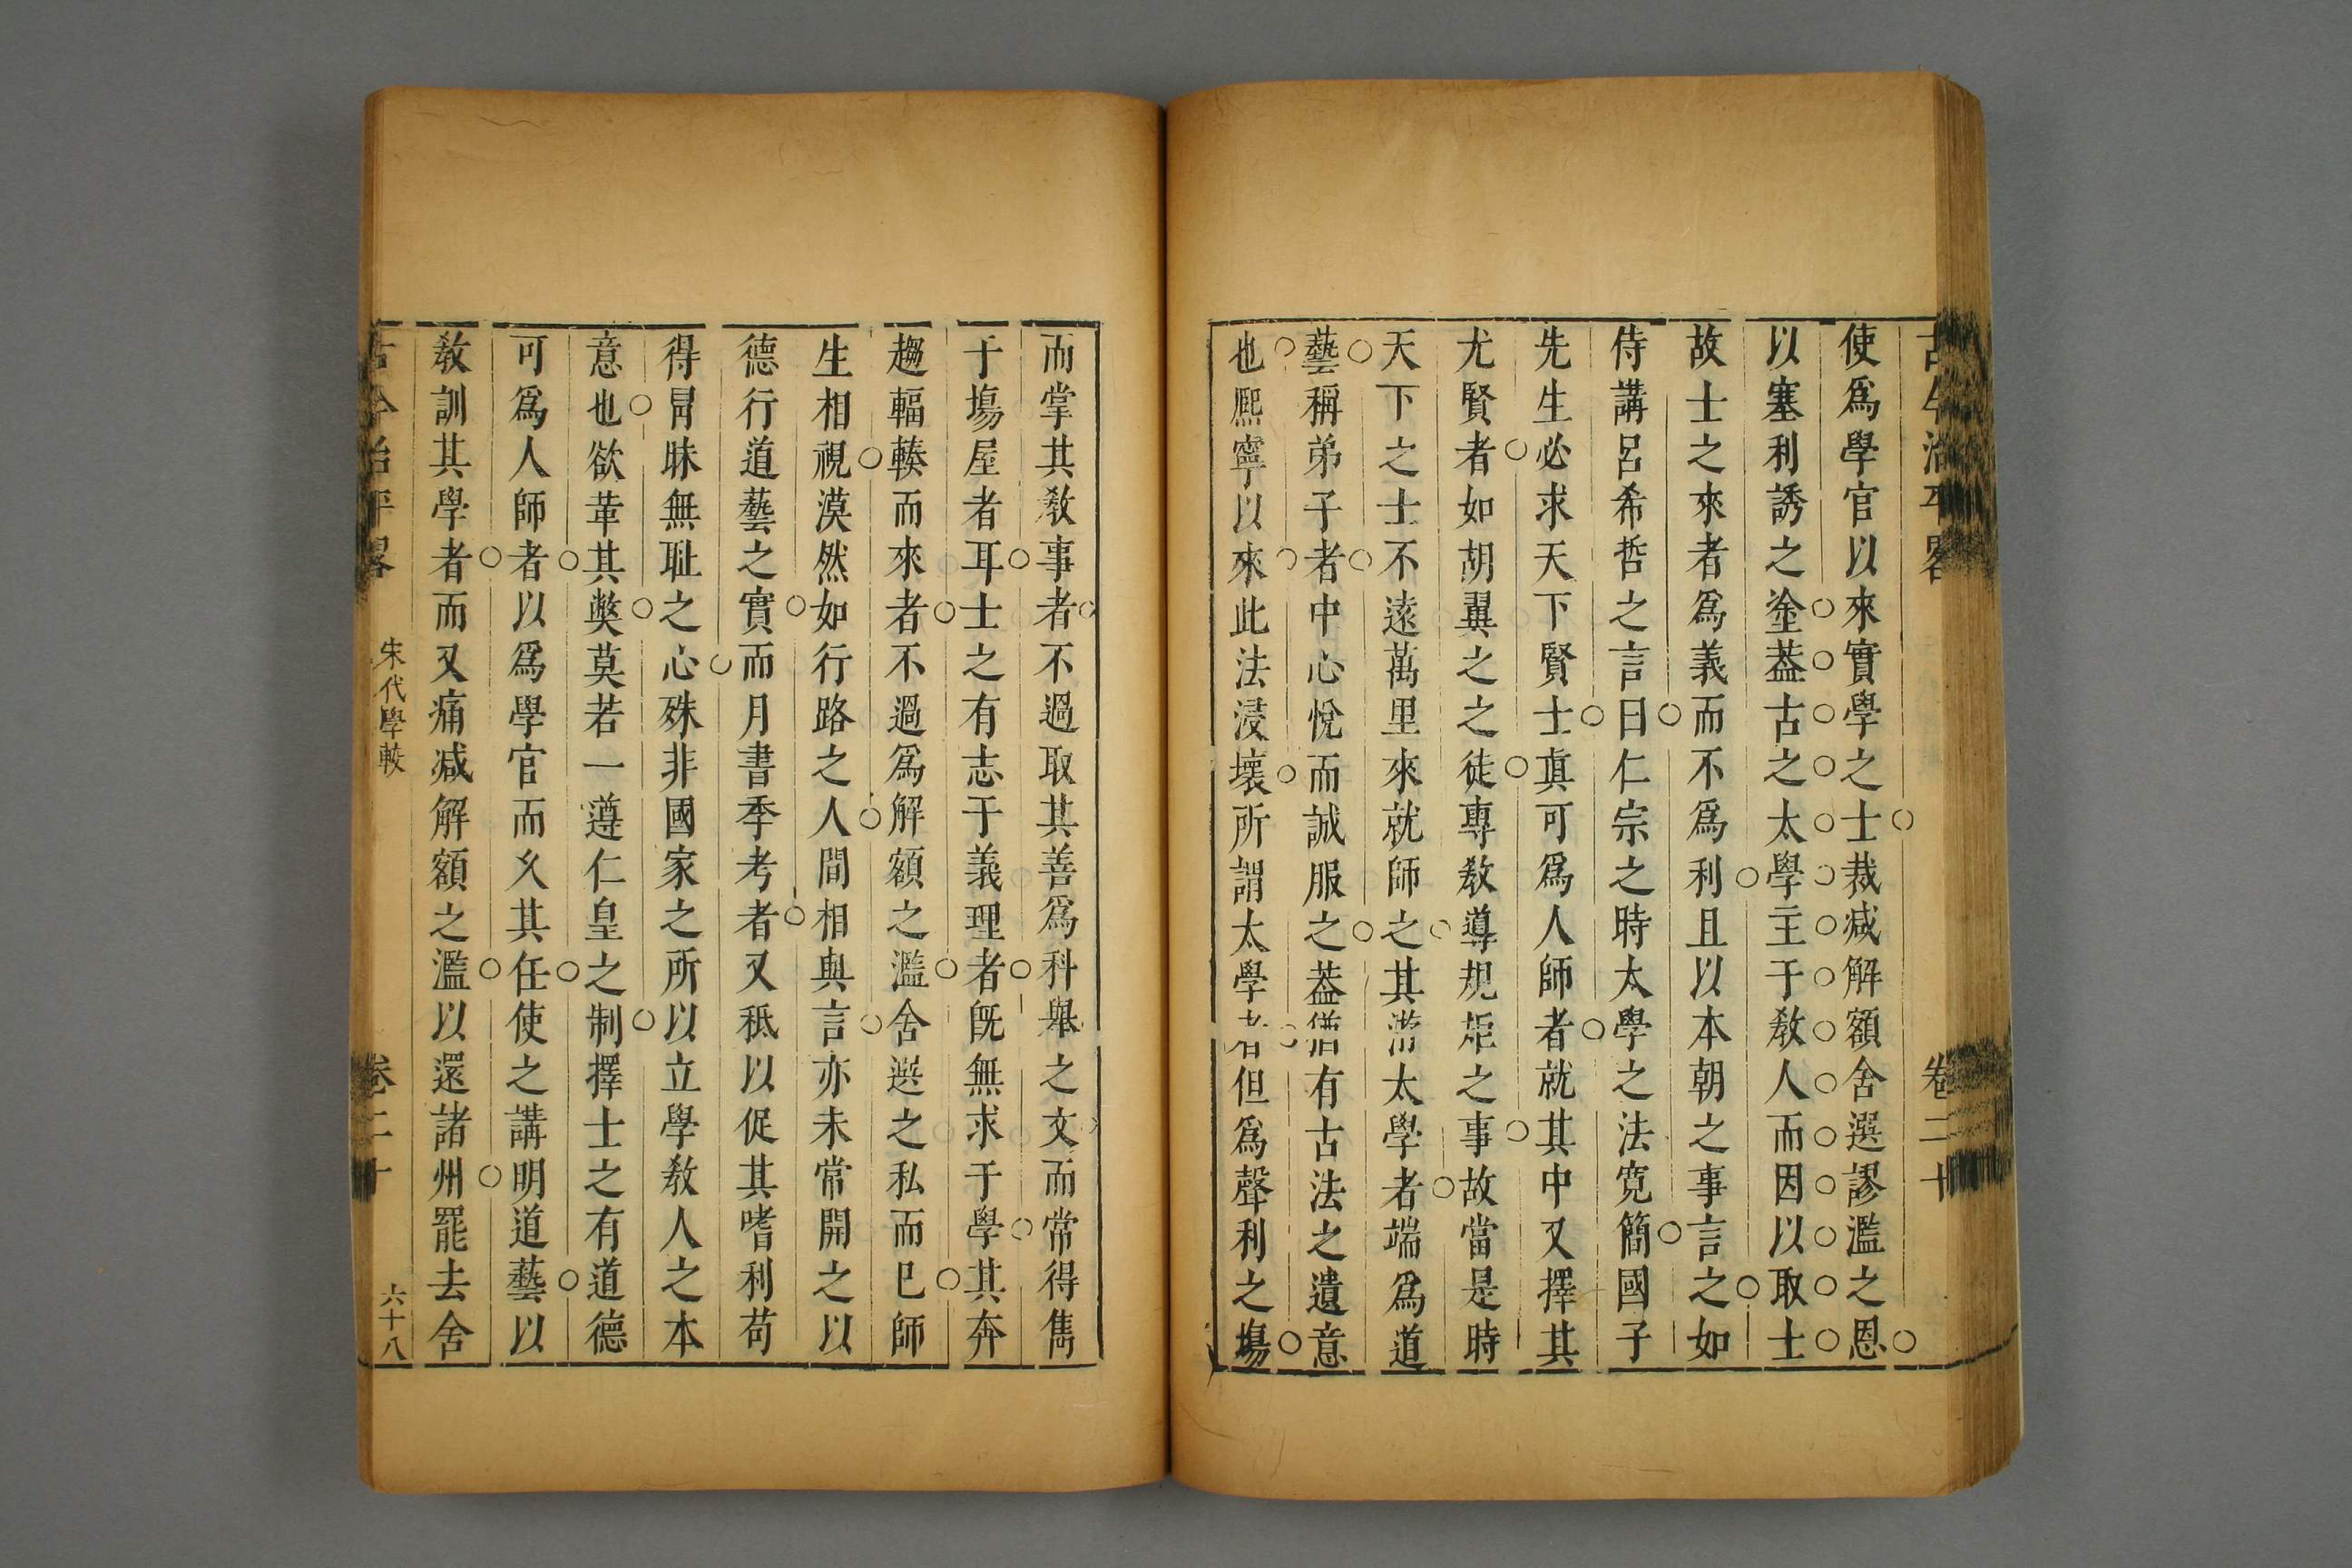 古今治平畧 卷二十
使爲學官以來實學之士裁减解額舍選謬濫之恩
以塞利誘之塗葢古之太學主于敎人而因以取士
故士之來者爲義而不爲利且以本朝之事言之如
侍講呂希哲之言曰仁宗之時太學之法寛簡國子
先生必求天下賢士眞可爲人師者就其中又擇其
尤賢者如胡翼之之徒專敎導規矩之事故當是時
天下之士不遠萬里來就師之其游太學者端爲道
藝稱弟子者中心悅而誠服之葢猶有古法之遺意
也熈寧以來此法浸壞所謂太學者但爲聲利之塲
而掌其敎事者不過取其善爲科舉之文而常得雋
于塲屋者耳士之有志于義理者旣無求于學其奔
趨輻輳而來者不過爲解額之濫舍選之私而巳師
生相視漠然如行路之人間相與言亦未常開之以
德行道藝之實而月書季考者又秪以促其嗜利苟
得冐昧無耻之心殊非國家之所以立學敎人之本
意也欲革其獘莫若一遵仁皇之制擇士之有道德
可爲人師者以爲學官而乆其任使之講明道藝以
敎訓其學者而又痛减解額之濫以還諸州罷去舍
古今治平畧 宋代學較 卷二十 六十八